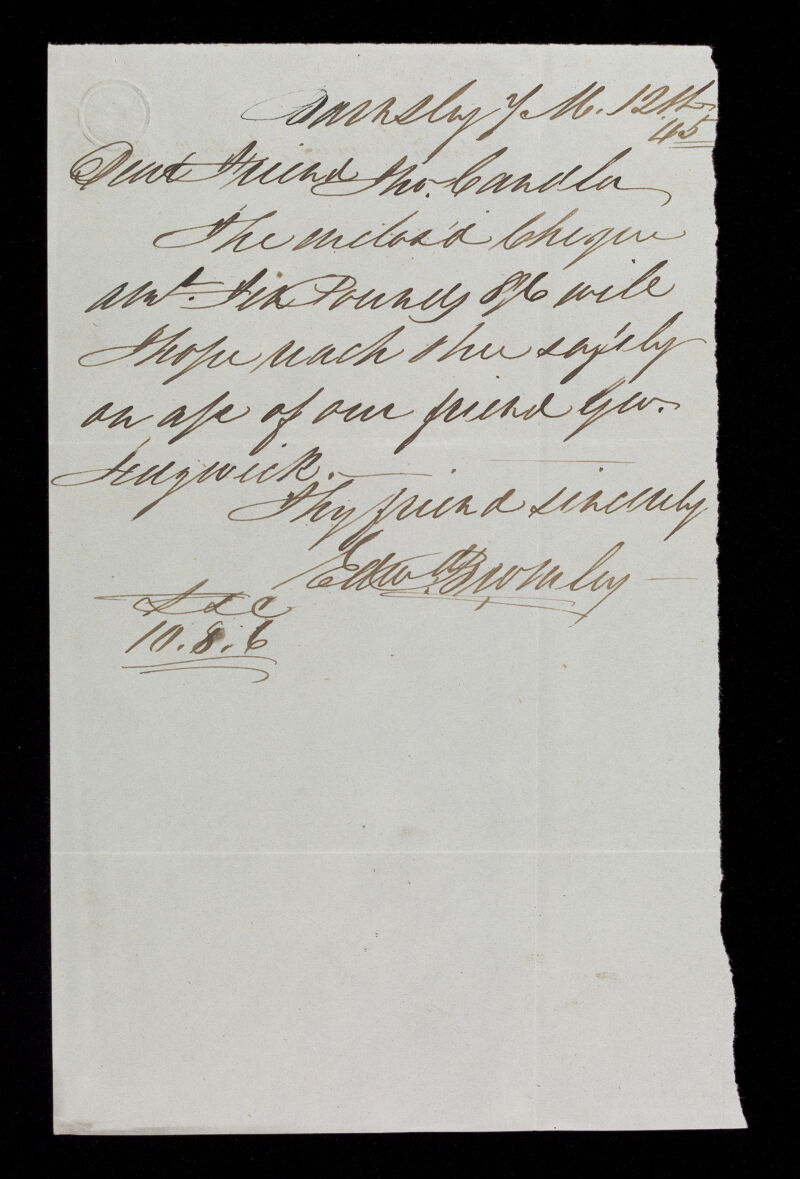 Barnsley 7 M. 12th
45
Dear Friend Tho. Candler
The inclos'd Cheque
amt. Ten Pounds 8/6 will
I hope reach thee safely
on a/c of our friend Geo.
Sedgwick.
Thy friend sincerely
Edwd. Bromley
10.8.6